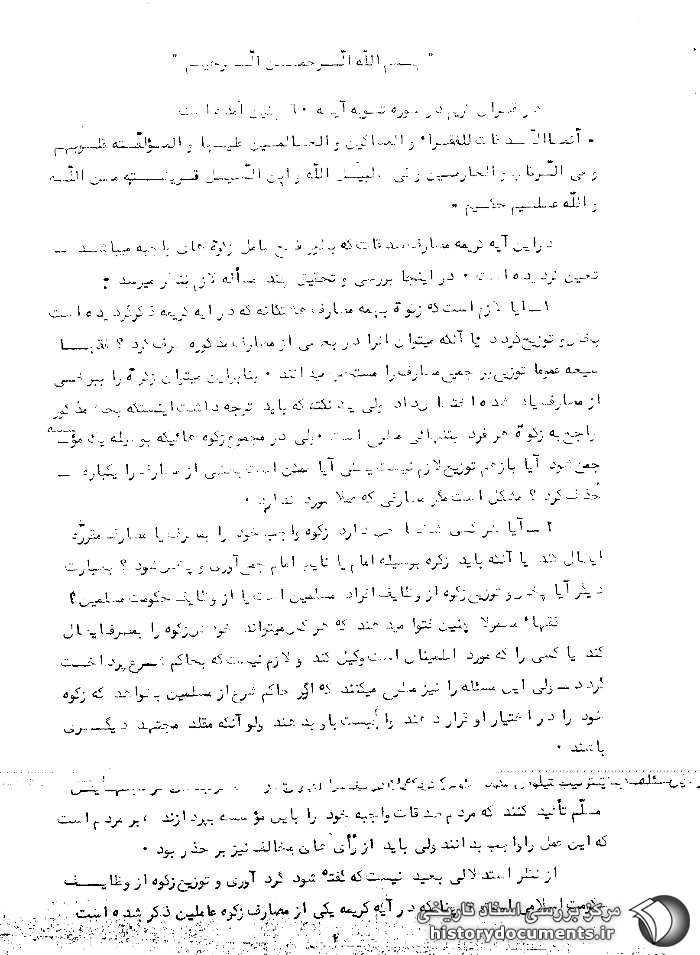 " بسم الله الرحمن الرحیم "
در قرآن کریم در سوره توبه آیه ۶۰ چنین آمده است
• انما الصدقات للفقراء و المساکین و العاملین علیها و المؤلفته قلوبهم
و فی الرقاب و الغارمین و فی سبیل الله و ابن السبیل فریضته من الله
و الله علیم حکیم •
دراین آیه کریمه مصارف صدقات که بطور شامل زکوة های واجبه میباشد ــ
تعیین گردیده است • در اینجا بررسی و تحقیق چند مسأله لازم بنظر میرسد :
۱ــ آیا لازم است که زکوة بهمه مصارف هشتگانه که در آیه کریمه ذکر گردیده است
پخش و توزیع گردد یا آنکه میتوان آنرا در بعضی از مصارف مذکوره صرف کرد ؟ فقهـا
شیعه عموما توزیع بر جمیع مصارف را مستحب میدانند • بنابراین میتوان زکوة را ببرخی
از مصارف یاد شده اختصاص داد ولی یک نکته که باید توجه داشت اینستکه بحث مذکور
راجع به زکوة هر فرد بتنهائی است • ولی در مجموع زکوه هائیکه بوسیله یک مؤسسه
جمع شود آیا بازهم توزیع لازم نیست یعنی آیا ممکن است بعضی از مصارف را یکباره ــ
حذف کرد ؟ مشکل است مگر مصارفی که اصلا مورد ندارد •
۲ ــ آیا هر کس شخصا حق دارد زکوه واجب خود را بمصرف یا مصارف مقرره
ایصال کند یا آنکه باید زکوه بوسیله امام یا نایب امام جمع آوری و پخش شود ؟ بعبارت
دیگر آیا پخش و توزیع زکوه از وظایف افراد مسلمین است یا از وظایف حکومت مسلمین ؟
فقهاء معمولا چنین فتوا میدهند که هر کس میتواند خودش زکوه را بمصرف ایصال
کند یا کسی را که مورد اطمینان است وکیل کند و لازم نیست که بحاکم شرع پرداخت
گردد ــ ولی این مسئله را نیز میکنند که اگر حاکم شرع از مسلمین بخواهد که زکوه
خود را در اختیار او قرار دهند را بایست باو بدهند ولو آنکه مقلد مجتهد دیگـری
باشند •
مسلم تأئید کنند که مردم صدقات واجبه خود را باین مؤسسه بپردازند ، بر مردم است
که این عمل را واجب بدانند ولی باید از رأی های مخالف نیز بر حذر بود •
از نظر استدلالی بعید نیست که گفته شود گرد آوری و توزیع زکوه از وظایـف
حکومت اسلامی در آیه کریمه یکی از مصارف زکوه عاملین ذکر شده است
مرکز بررسی اسناد تاریخی
historydocuments.ir